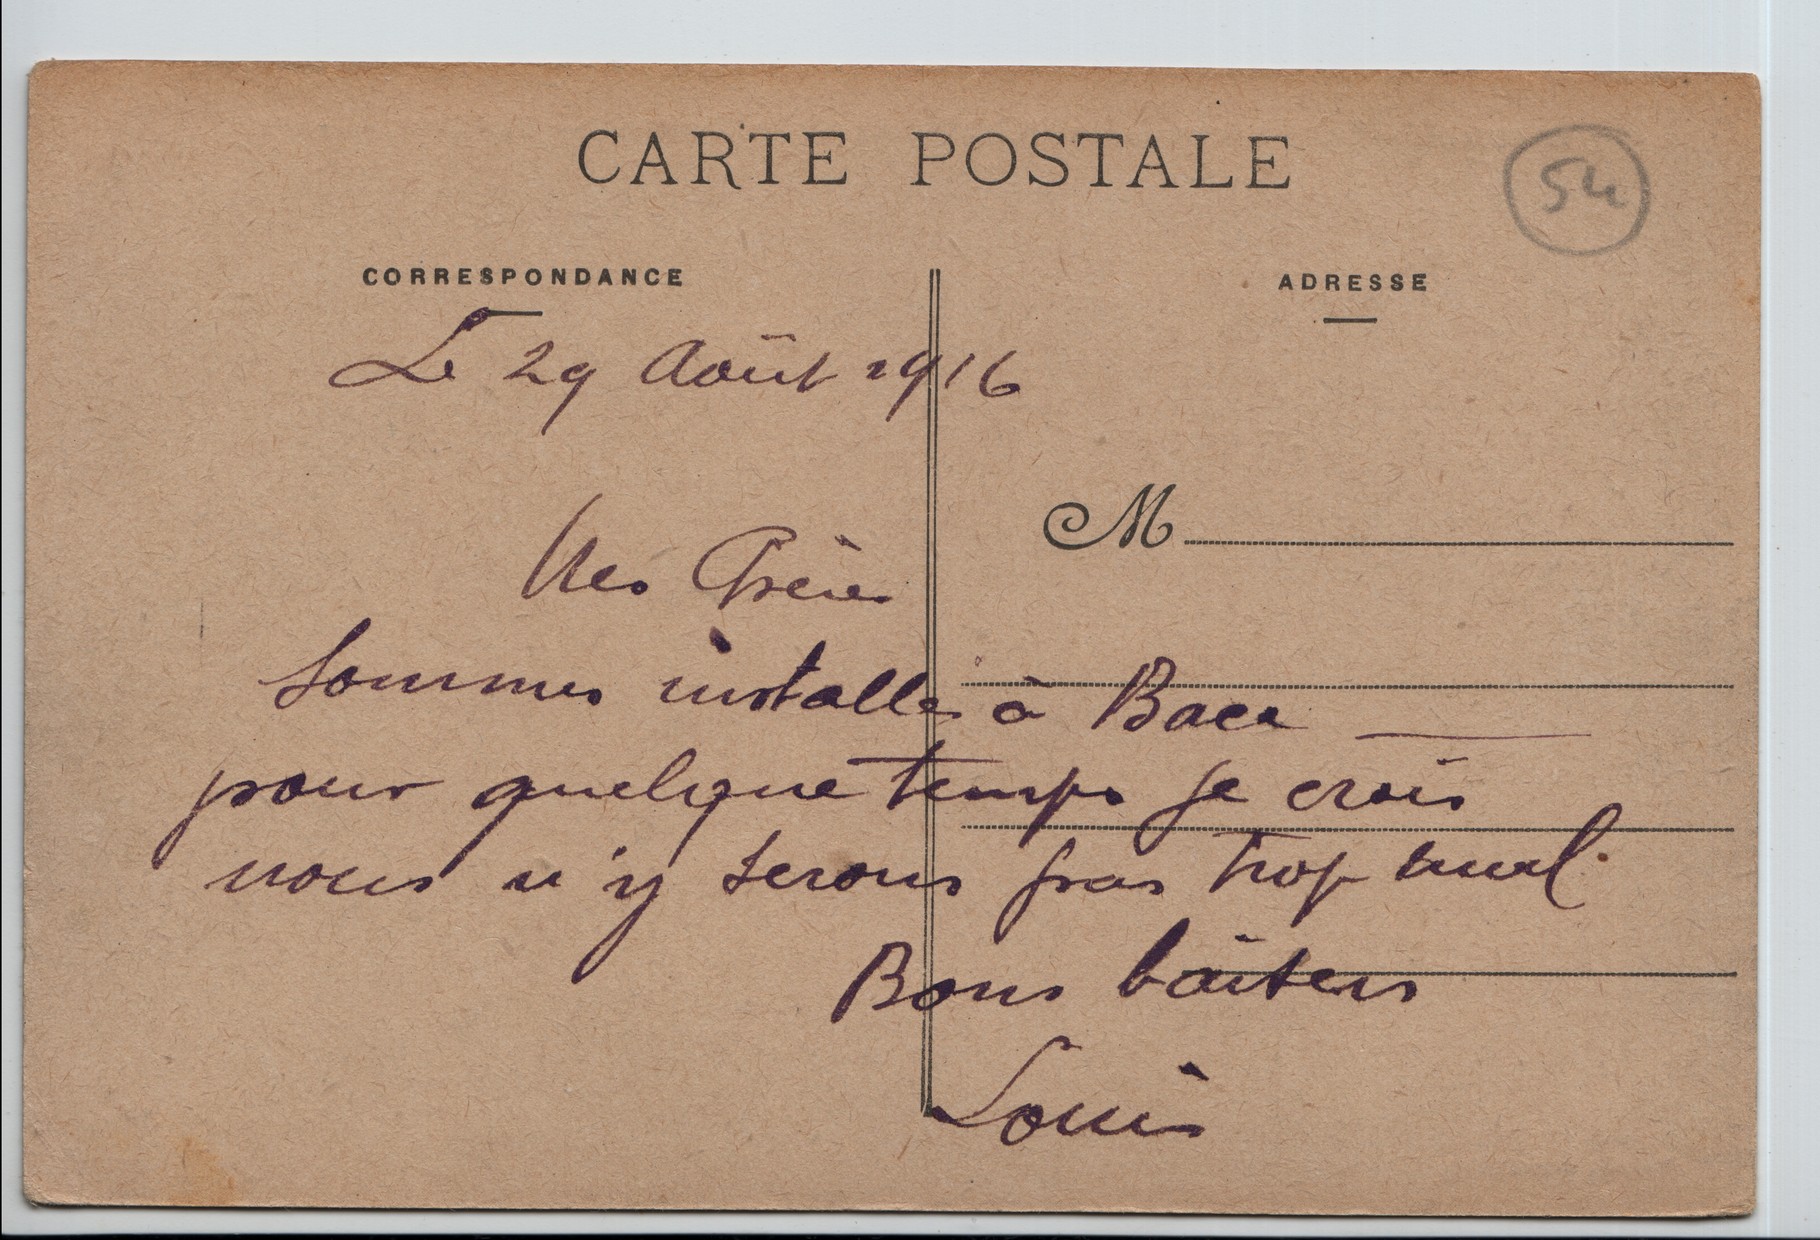 CARTE POSTALE
54
CORRESPONDANCE
ADRESSE
Le 29 Août 1916
M
Mes
Sommes installés à
pour quelque temps je crois
nous n'y serons pas trop mal.
Bons baisers
Louis